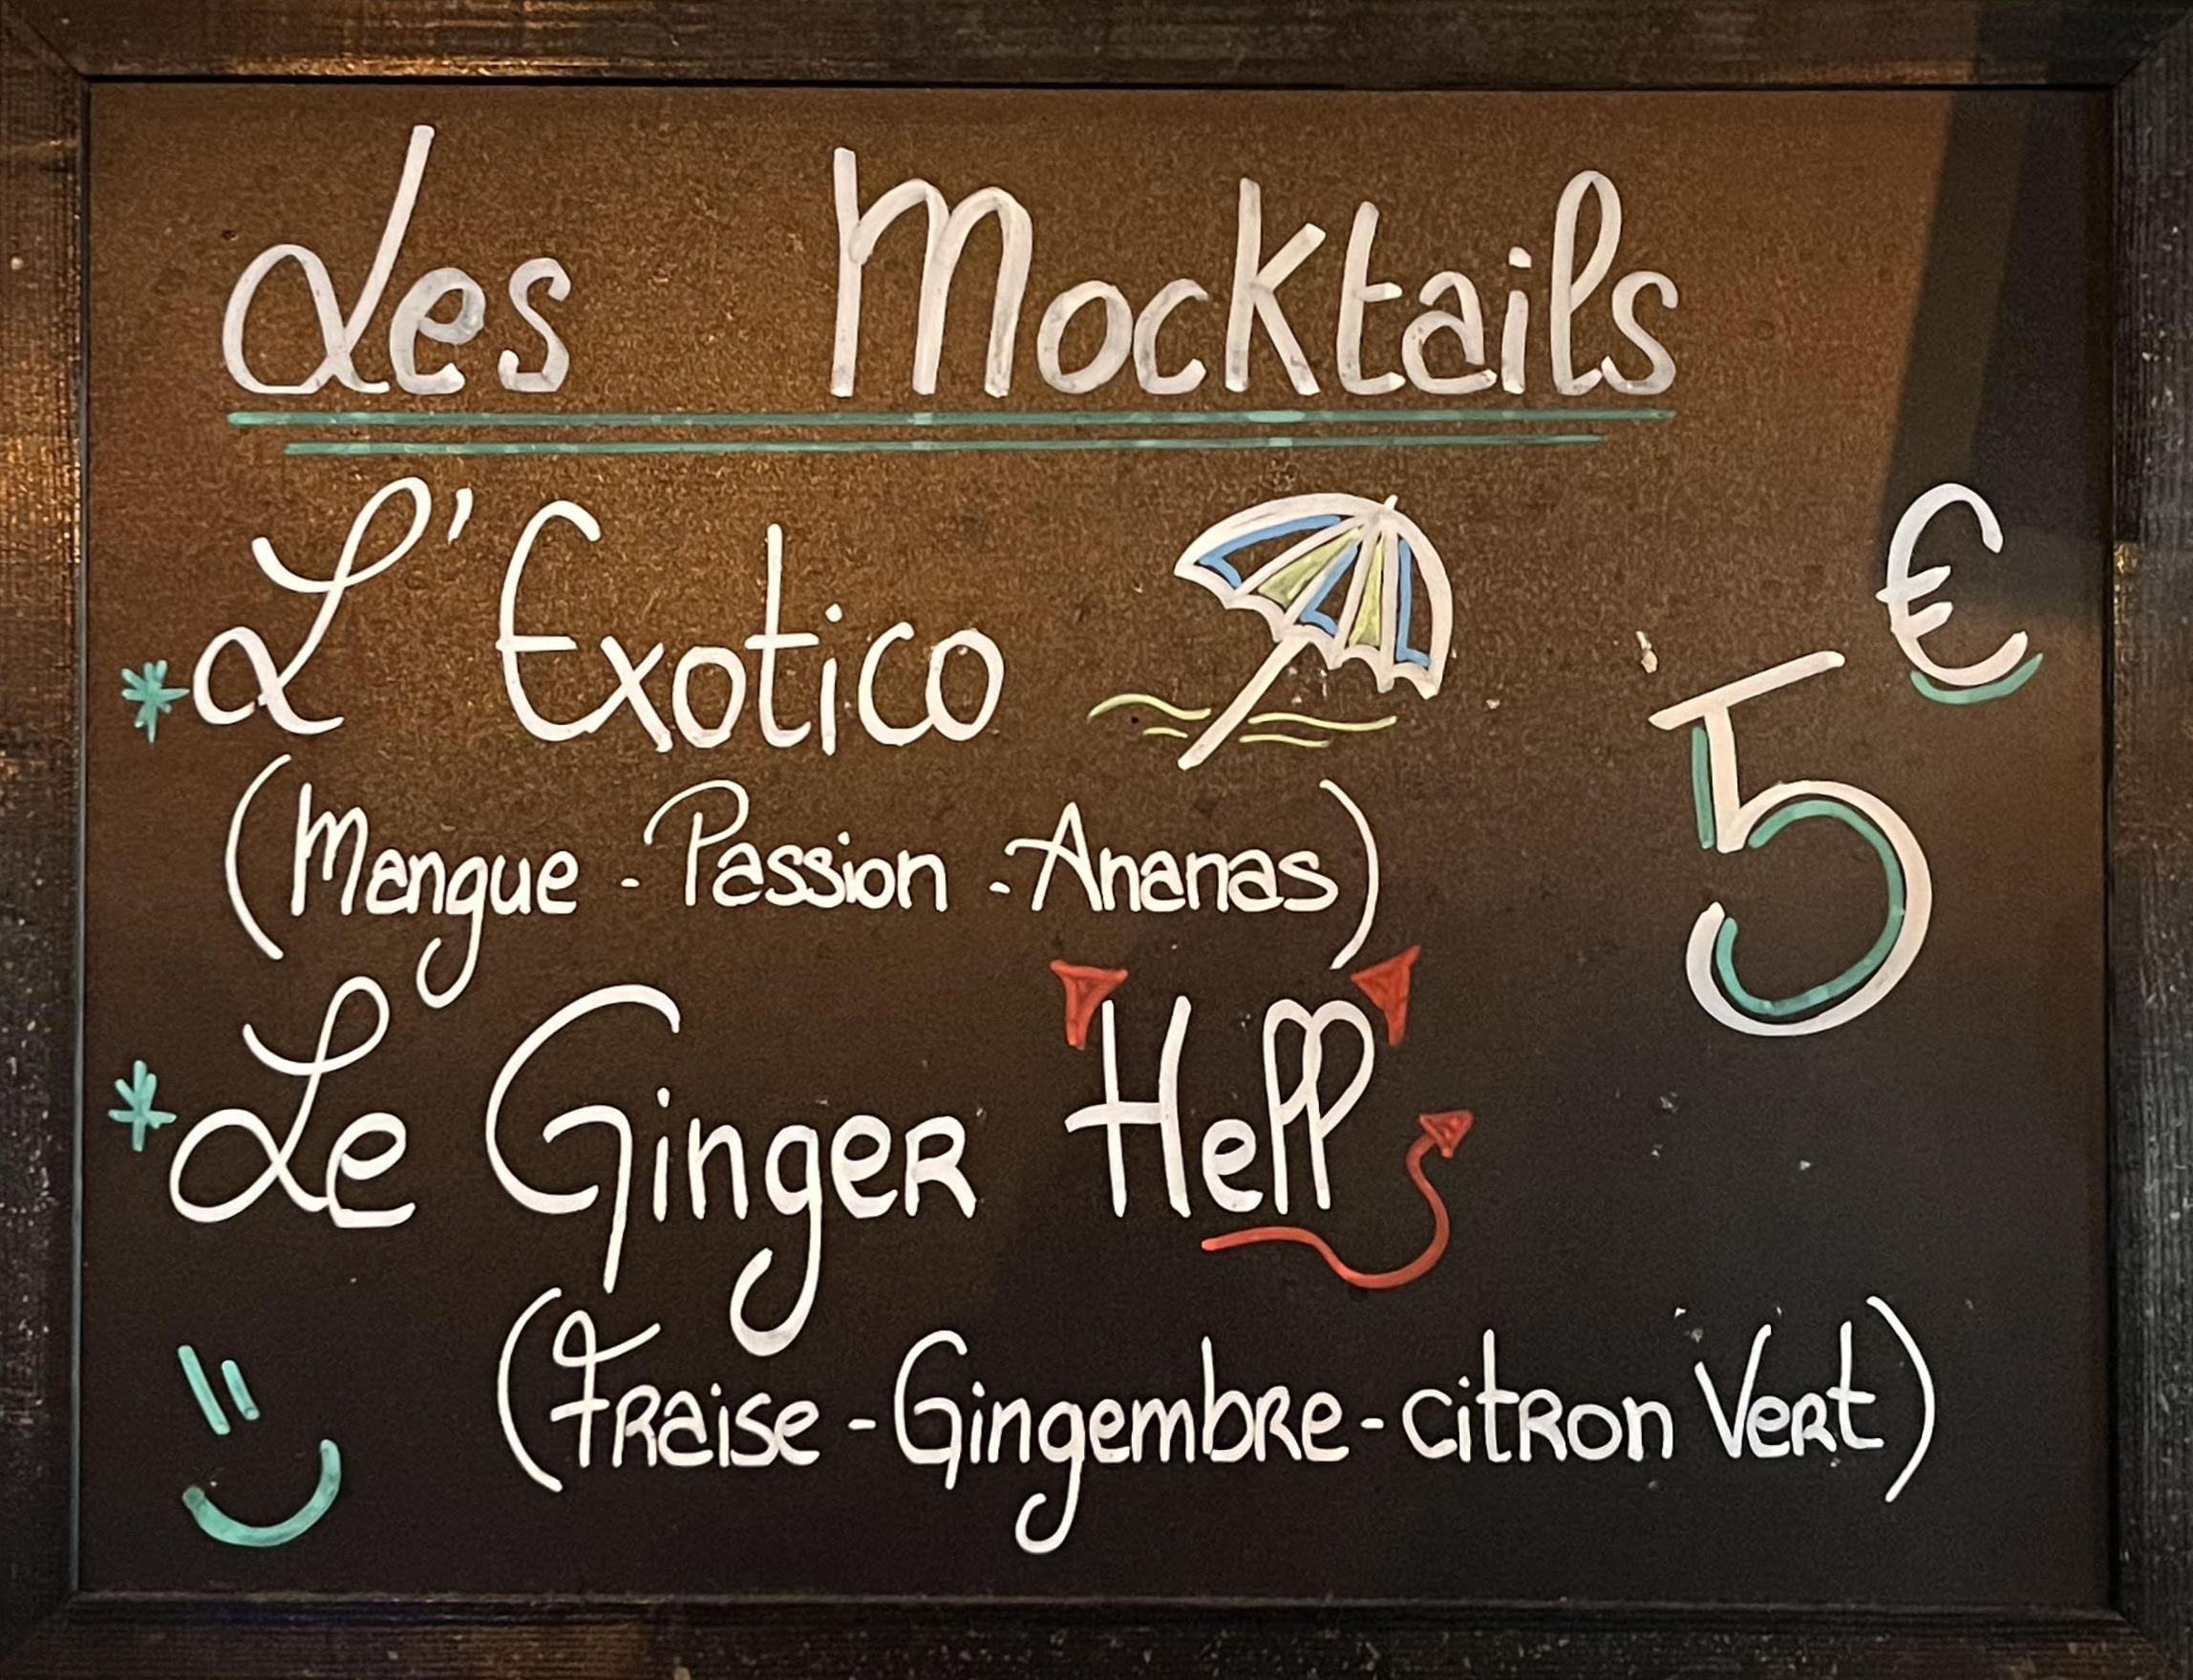 Les Mocktails
* L'Exotico
5€
(Mangue - Passion - Ananas)
* Le Ginger Hell
(Fraise - Gingembre - citron Vert)